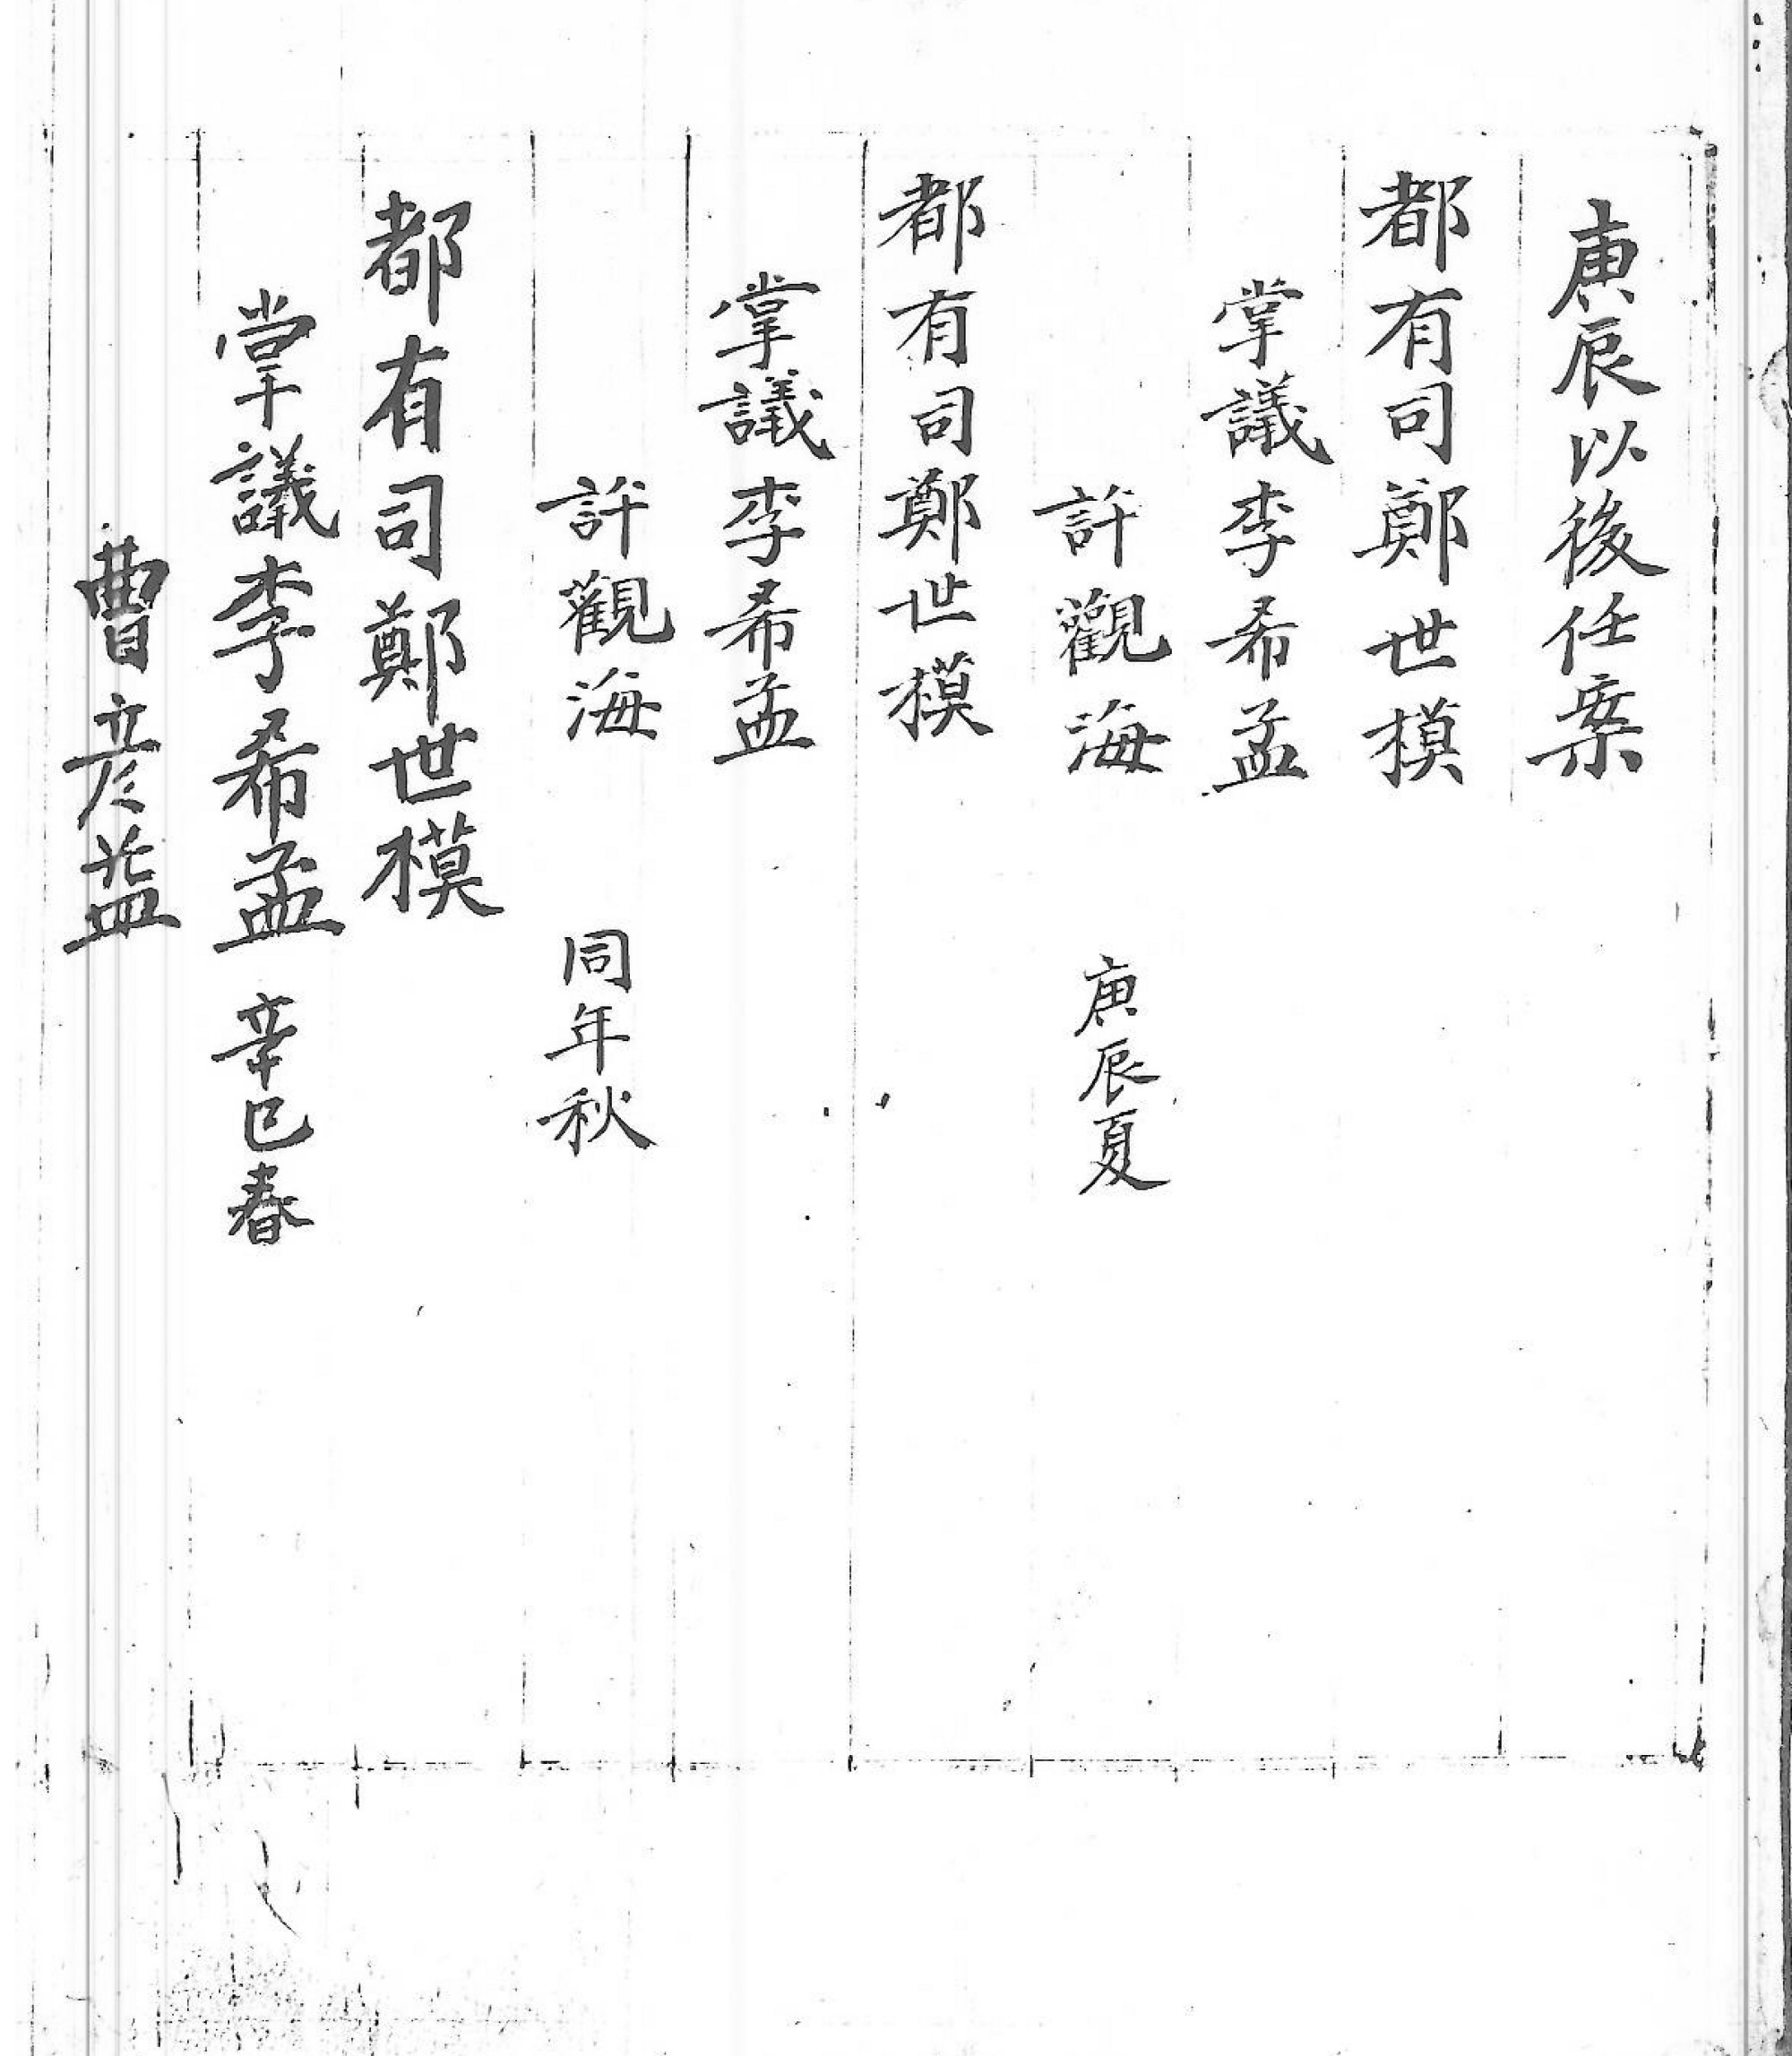 庚辰以後任案
都有司鄭世模
掌議李希孟
許觀海 庚辰夏
都有司鄭世模
掌議李希孟
許觀海 同年秋
都有司鄭世模
掌議李希孟 辛巳春
曹彦益